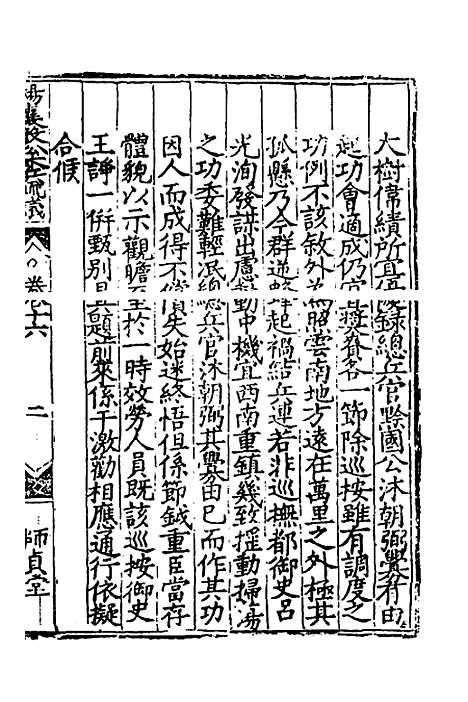 大樹偉績所宜優錄總兵官黔國公沐朝弼釁有由
起功會適成仍宜
獎賚各一節除巡按雖有調度之
功例不該敘外為照雲南地方遠在萬里之外極其
孤縣乃今群逆蜂起禍結兵連若非巡撫都御史呂
光洵發謀出慮動中機宜西南重鎮幾致搖動掃蕩
之功委難輕泯總兵官沐朝弼其釁由已而作其功
因人而成得不償失始迷終悟但係節鉞重臣當存
體貌以示觀瞻至於一時效勞人員既該巡按御史
王諍一併甄別具題前來係干激勸相應通行依擬
合候
卷十六
二
師貞堂